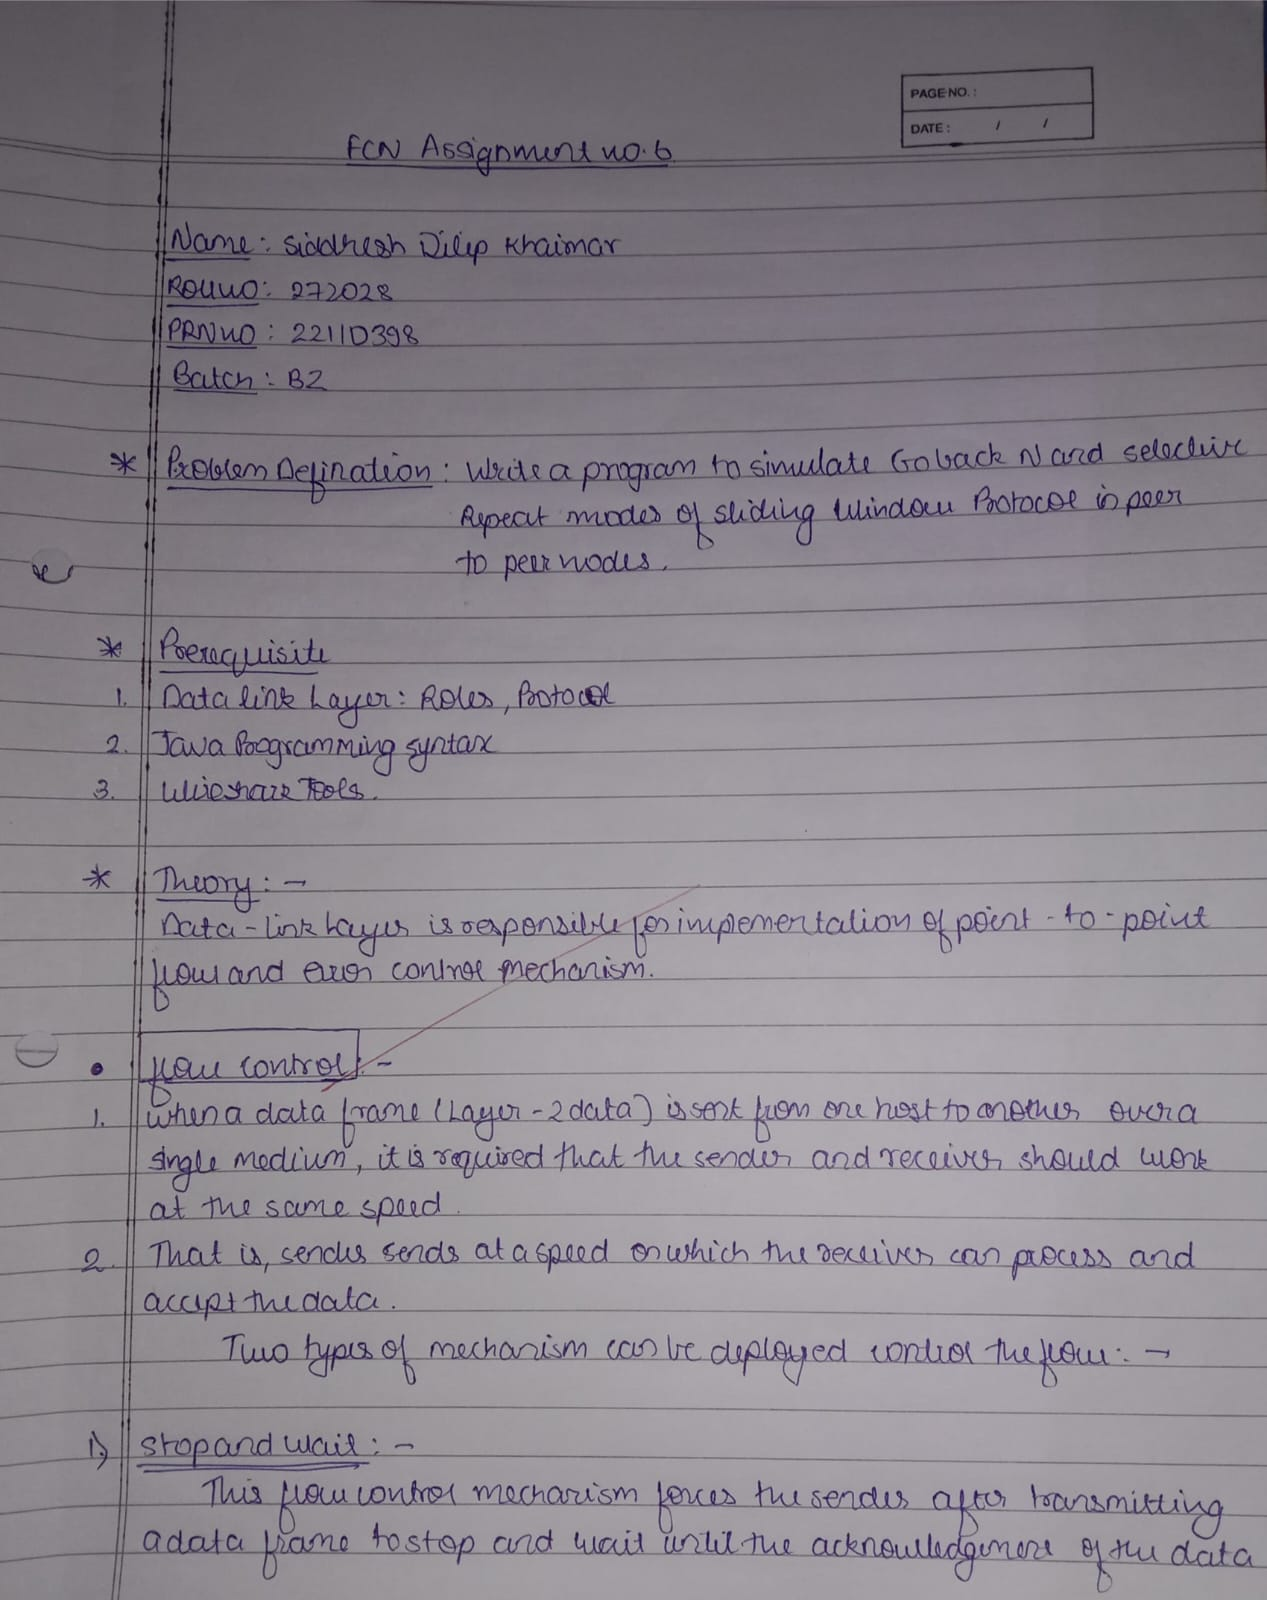 PAGE NO. :
DATE : / /
FCN Assignment no. 6
Name : Siddhesh Dilip Khairnar
Roll no : 272028
PRN no : 22110398
Batch : B2
* Problem Defination : Write a program to simulate Go back N and selective
Repeat modes of sliding Window Protocol in peer
to peer nodes.
* Prerequisite
1. Data link Layer : Roles, Protocol
2. Java Programming syntax
3. Wireshark Tools.
* Theory : -
Data-link Layer is responsible for implementation of point-to-point
flow and error control mechanism.
• flow control : -
1. when a data frame (Layer-2 data) is sent from one host to another over a
single medium, it is required that the sender and receiver should work
at the same speed.
2. That is, sender sends at a speed on which the receiver can process and
accept the data.
Two types of mechanism can be deployed control the flow : →
1) stop and wait : -
This flow control mechanism forces the sender after transmitting
a data frame to stop and wait until the acknowledgement of the data